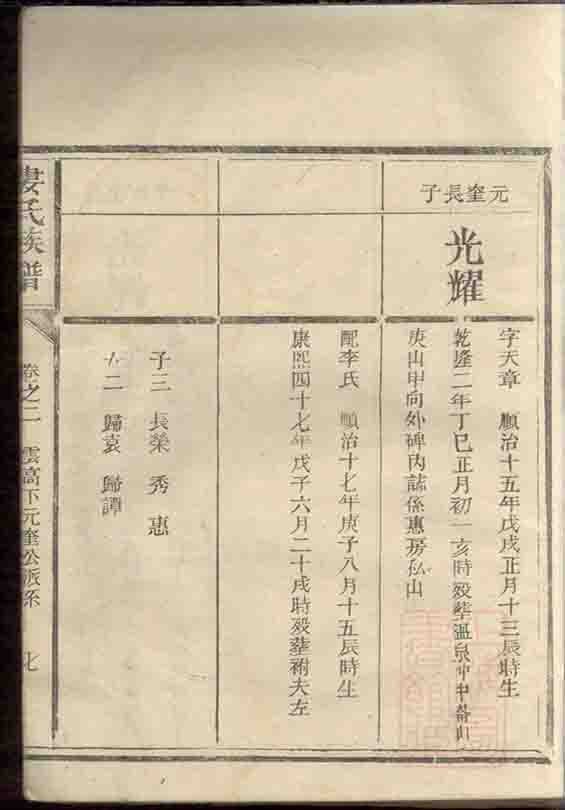 元奎長子
光耀
字天章　順治十五年戊戌正月十三辰時生
乾隆二年丁巳正月初一亥時歿葬溫泉冲中
庚山甲向外碑內誌係惠房私山
配李氏　順治十七年庚子八月十五辰時生
康熙四十七年戊子六月二十戌時歿葬祔夫左
子三　長榮　秀　惠
女二　歸袁　歸譚
婁氏族譜
卷之二　雲高下元奎公派系　七